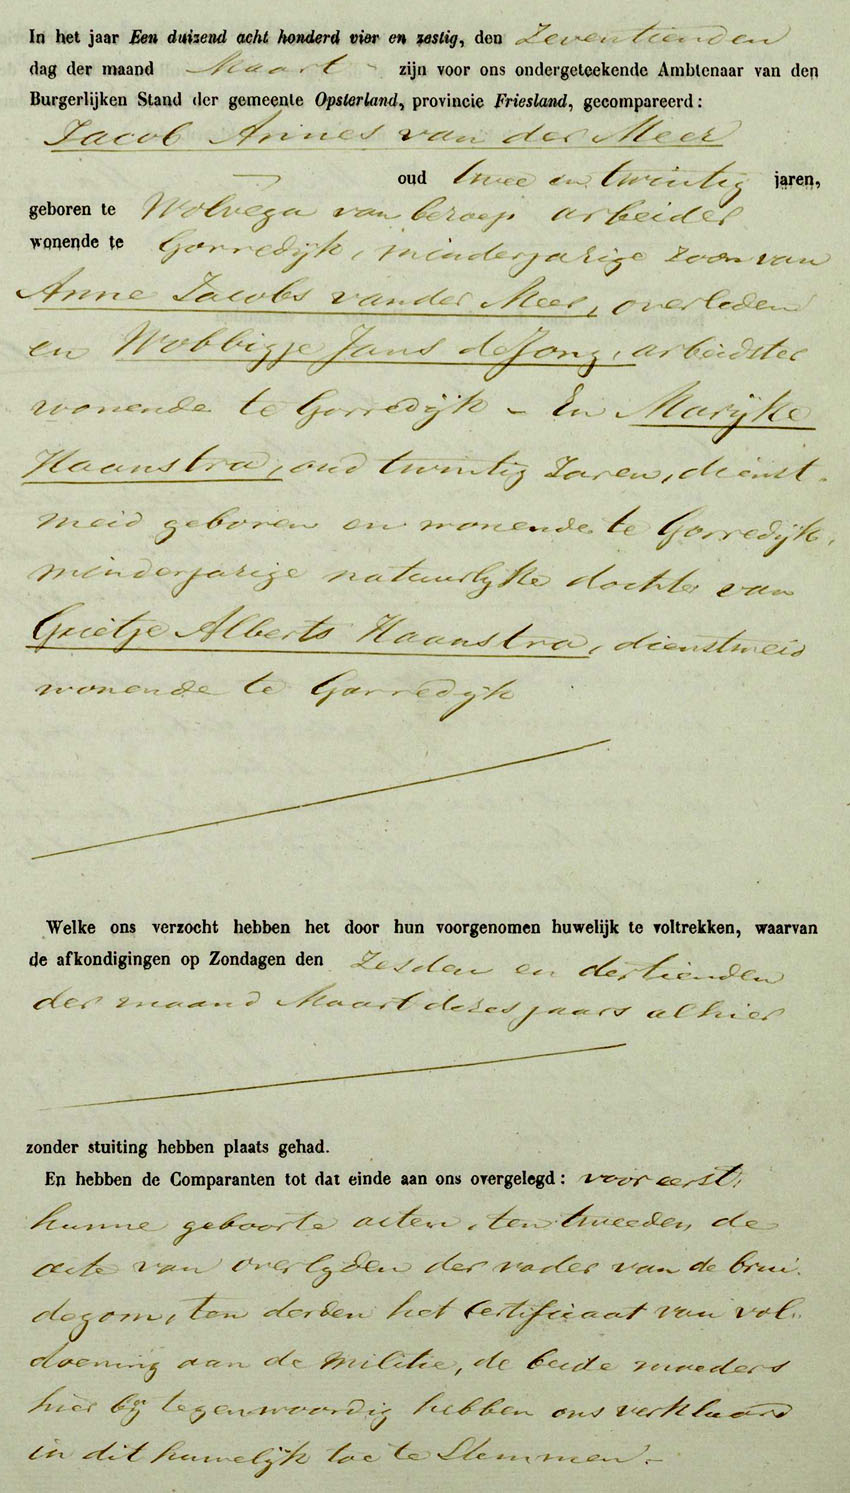 In het jaar Een duizend acht honderd vier en zestig, den Zeventienden
dag der maand Maart zijn voor ons ondergeteekende Ambtenaar van den
Burgerlijken Stand der gemeente Opsterland, provincie Friesland, gecompareerd:
Jacob Annes van der Meer
oud twee en twintig jaren,
geboren te Wolvega van beroep arbeider
wonende te Gorredijk, minderjarige zoon van
Anne Jacobs van der Meer, overleden
en Wobbigje Jans de Jong, arbeidster
wonende te Gorredijk - En Marijke
Haanstra, oud twintig Jaren, dienst-
meid geboren en wonende te Gorredijk,
minderjarige natuurlijke dochter van
Grietje Alberts Haanstra, dienstmeid
wonende te Gorredijk
Welke ons verzocht hebben het door hun voorgenomen huwelijk te voltrekken, waarvan
de afkondigingen op Zondagen den zesden en dertienden
der maand Maart dezes jaars alhier
zonder stuiting hebben plaats gehad.
En hebben de Comparanten tot dat einde aan ons overgelegd: voor eerst,
hunne geboorte acten, ten tweeden de
acte van overlyden der vader van de brui-
degom, ten derden het certificaat van vol-
doening aan de militie, de beide moeders
hier bij tegenwoordig hebben ons verklaard
in dit huwelijk toe te stemmen.-